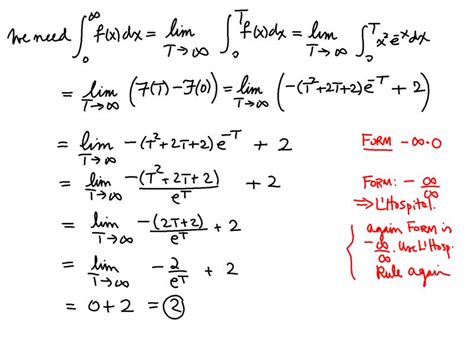 We need ∫₀^∞ f(x)dx = lim_{T→∞} ∫₀^T f(x)dx = lim_{T→∞} ∫₀^T x² e^{-x} dx
= lim_{T→∞} (F(T) - F(0)) = lim_{T→∞} (-(T²+2T+2)e^{-T} + 2)
= lim_{T→∞} -(T²+2T+2) e^{-T} + 2 FORM -∞·0
= lim_{T→∞} -(T²+2T+2)/e^T + 2 FORM: - ∞/∞
⇒ L'Hospital.
= lim_{T→∞} -(2T+2)/e^T + 2 again FORM is
-∞/∞. Use L'Hosp.
= lim_{T→∞} -2/e^T + 2 Rule again
= 0+2 = 2